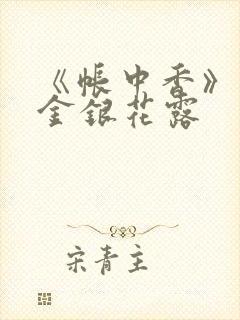 《帐中香》
金银花露
宋青主